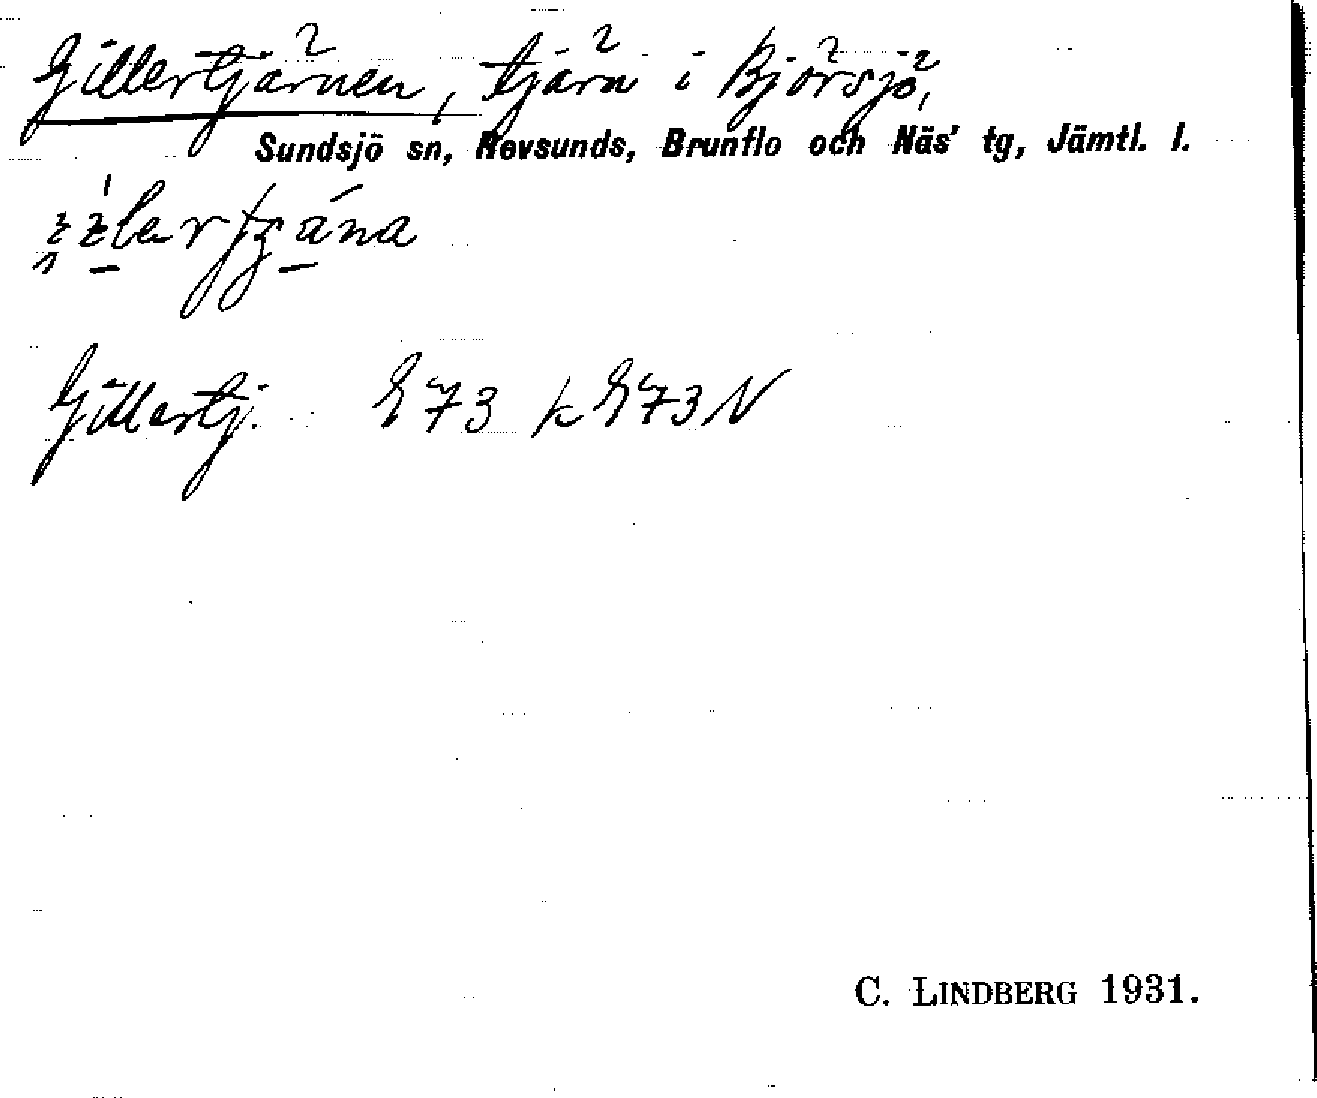 Gillertjärnen, tjärn i Björsjö,
Sundsjö sn, Revsunds, Brunflo och Näs' tg, Jämtl. l.
Gillertj. E73 k E73 N
C. LINDBERG 1931.